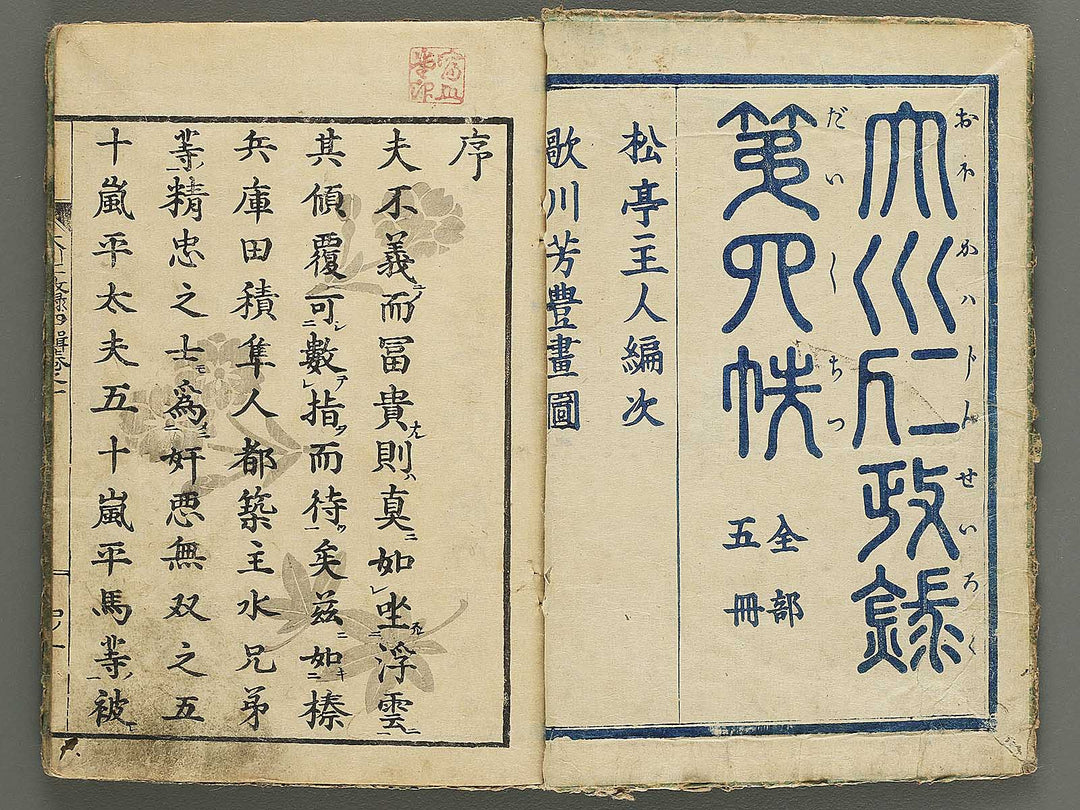 大川仁政録
おほかハじんせいろく
第四帙
だいしちつ
全部
五冊
松亭主人編次
歌川芳豊畫圖
序
夫不義而冨貴則真如坐浮雲
其傾覆可數指而待矣茲如榛
兵庫田積隼人都築主水兄弟
等精忠之士爲奸悪無双之五
十嵐平太夫五十嵐平馬等被